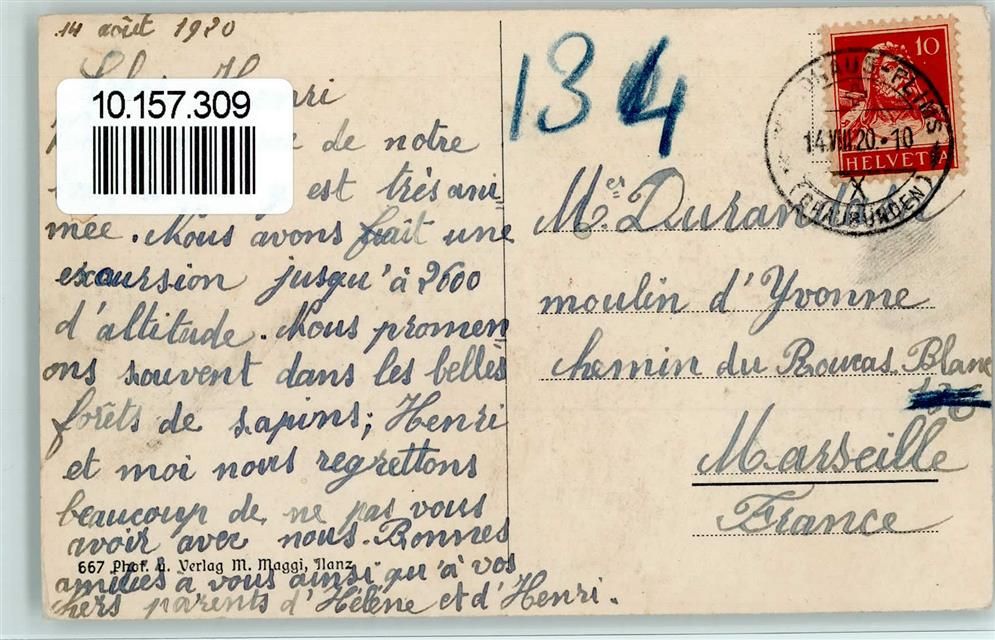 14 août 1920
10.157.309
de notre
est très ani
mée. Nous avons fait une
excursion jusqu'à 2600
d'altitude. Nous promen
ons souvent dans les belles
forêts de sapins; Henri
et moi nous regrettons
beaucoup de ne pas vous
avoir avec nous. Bonnes
667 Phot. u. Verlag M. Maggi, Ilanz
amitiés à vous ainsi qu'à vos
chers parents d'Hélène et d'Henri.
134
10
HELVETIA
14.VIII.20.-10
(GRAUBÜNDEN)
Mer Durand
moulin d'Yvonne
chemin du Roucas Blanc
Marseille
France